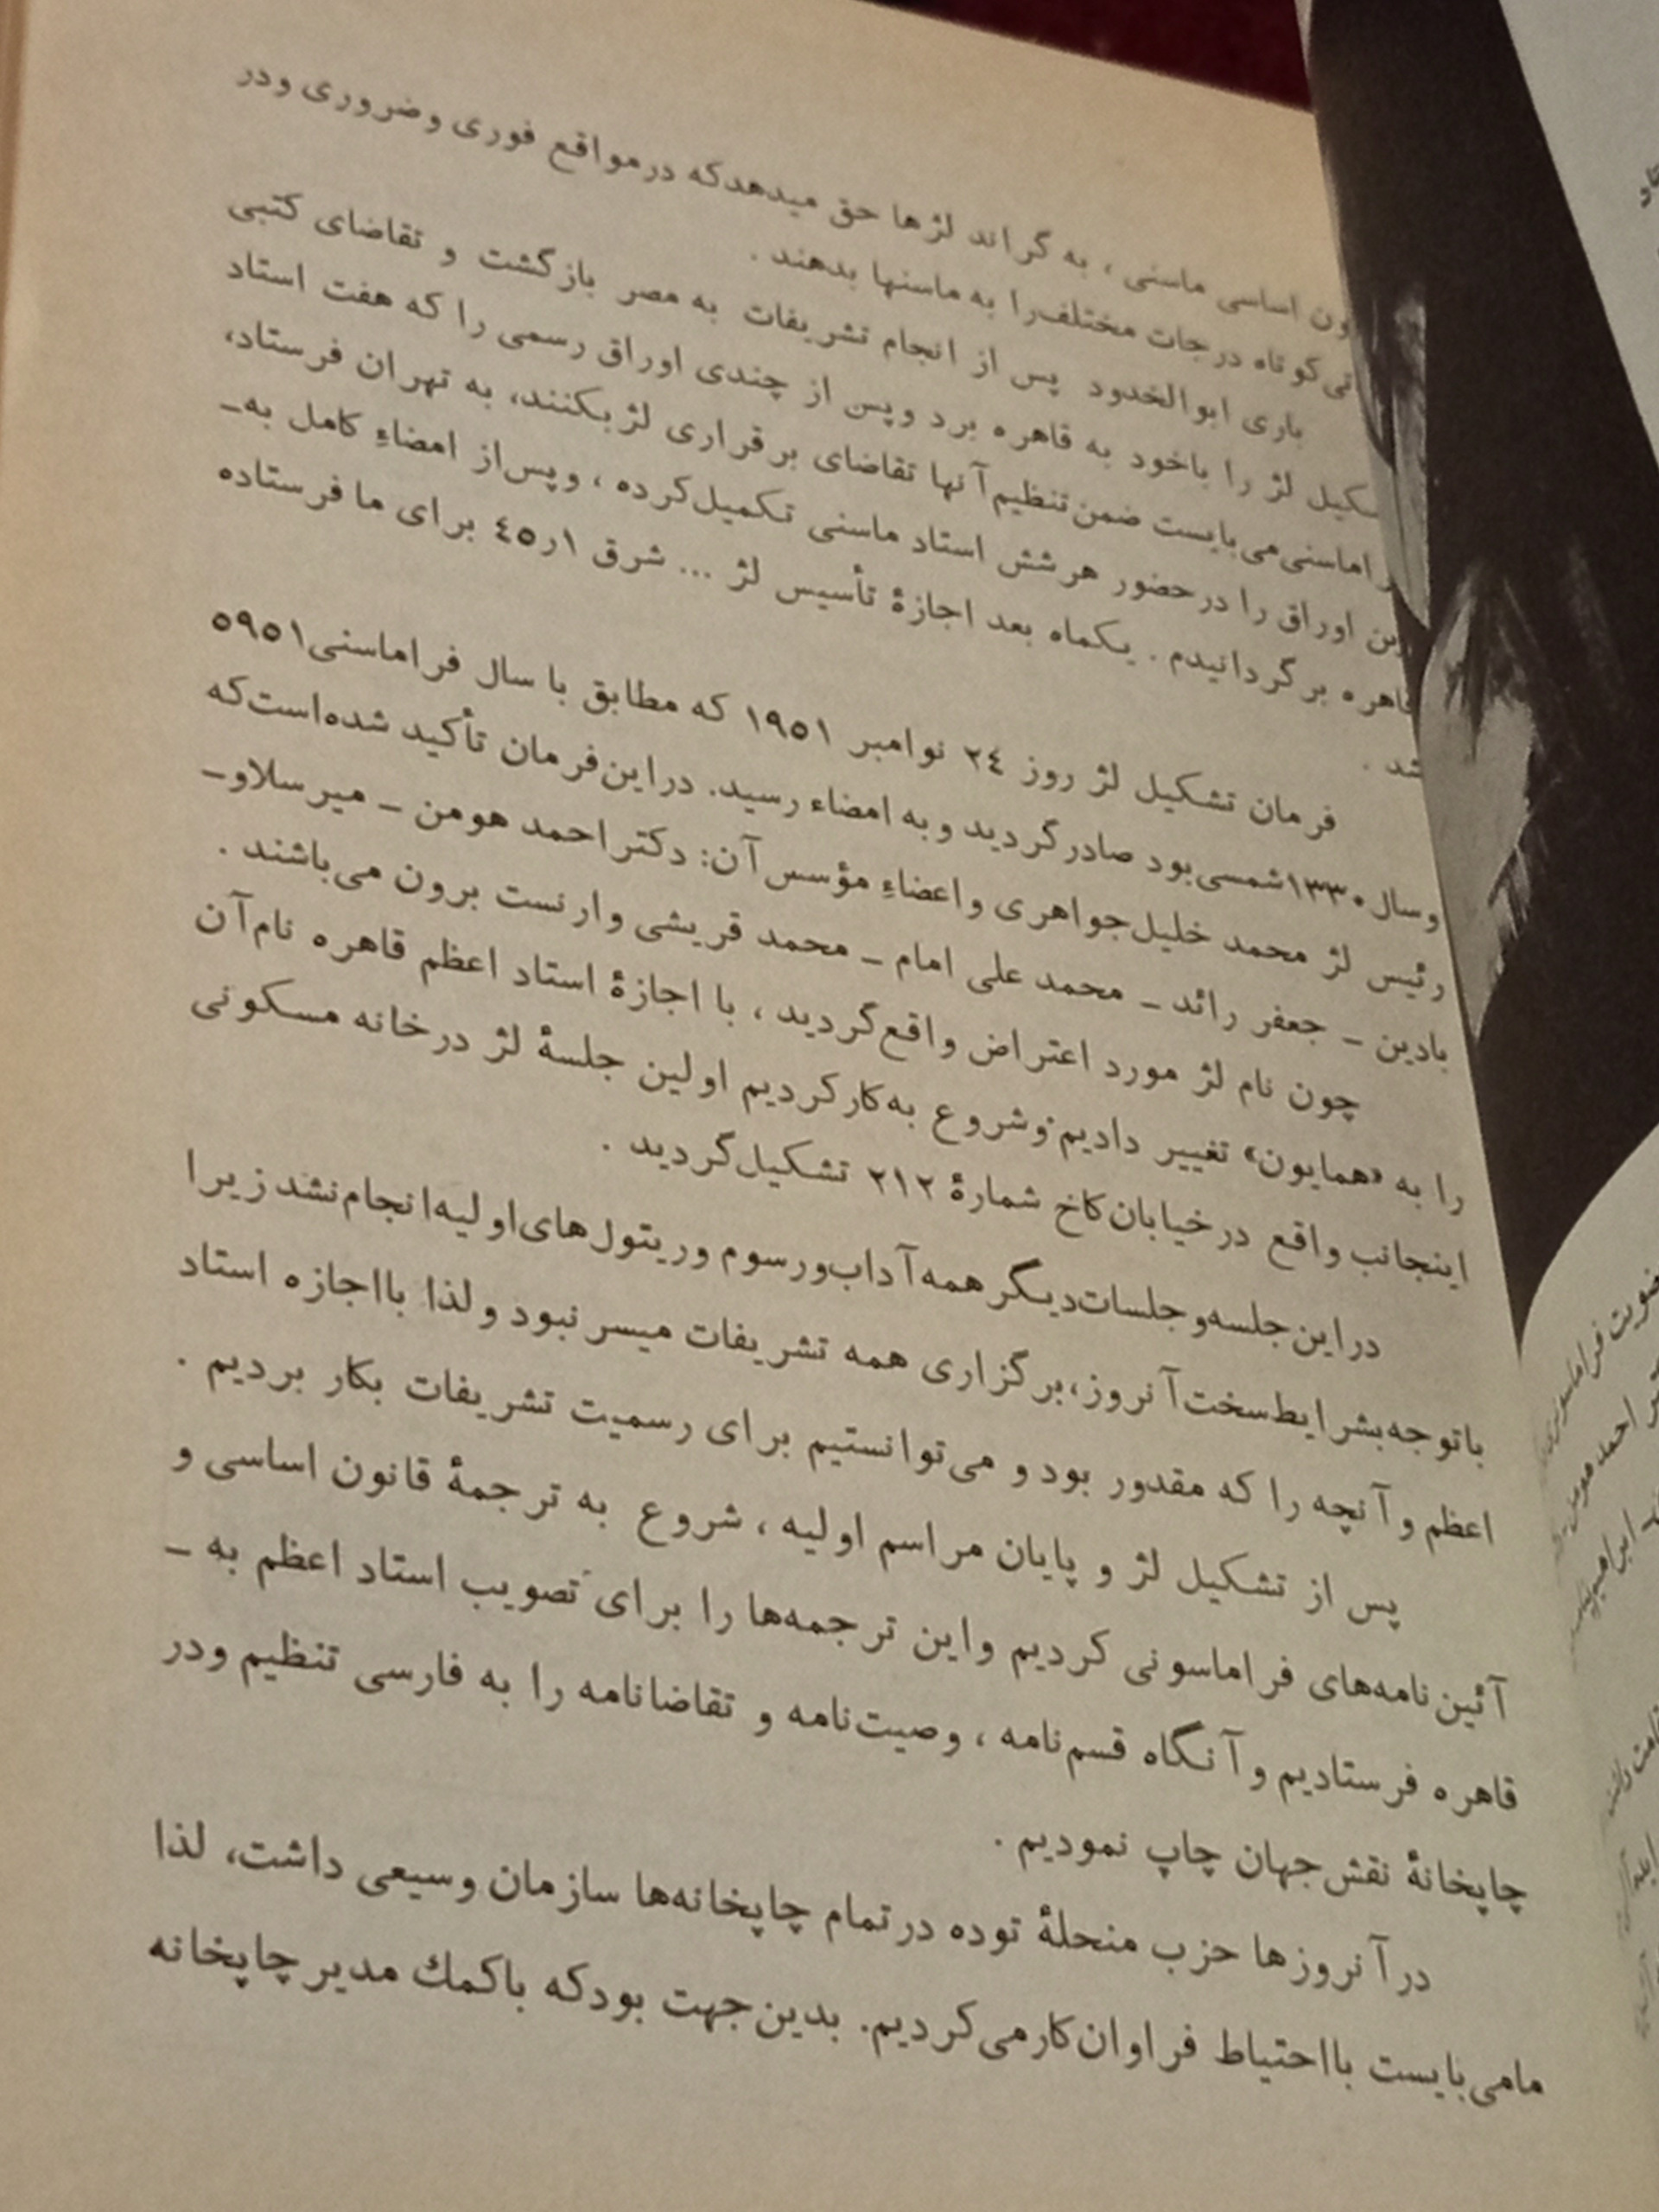 اساسی ماسنی ، به گراند لژها حق میدهدکه درمواقع فوری وضروری ودر
کوتاه درجات مختلف‌را به ماسنها بدهند .
باری ابوالخدود پس از انجام تشریفات به مصر بازگشت و تقاضای کتبی
لژ را باخود به قاهره برد وپس از چندی اوراق رسمی را که هفت استاد
می‌بایست ضمن‌تنظیم‌آنها تقاضای برقراری لژبکنند، به تهران فرستاد،
اوراق را درحضور هرشش استاد ماسنی تکمیل‌کرده ، وپس‌از امضاءِ کامل به‌ـ
برگردانیدم . یکماه بعد اجازهٔ تأسیس لژ ... شرق ١ر٤٥ برای ما فرستاده
شد .
فرمان تشکیل لژ روز ٢٤ نوامبر ١٩٥١ که مطابق با سال فراماسنی٥٩٥١
وسال١٣٣٠شمسی‌بود صادرگردید وبه امضاء رسید. دراین‌فرمان تأکید شده‌است‌که
رئیس لژ محمد خلیل‌جواهری واعضاءِ مؤسس‌آن: دکتراحمد هومن ـ میرسلاو‌ـ
بادین ـ جعفر رائد ـ محمد علی امام ـ محمد قریشی وارنست برون می‌باشند .
چون نام لژ مورد اعتراض واقع‌گردید ، با اجازهٔ استاد اعظم قاهره نام‌آن
را به «همایون» تغییر دادیم‌وشروع به‌کارکردیم اولین جلسهٔ لژ درخانه مسکونی
اینجانب واقع درخیابان‌کاخ شمارهٔ ٢١٢ تشکیل‌گردید .
دراین‌جلسه‌وجلسات‌دیگرهمه‌آداب‌ورسوم وریتول‌های‌اولیه‌انجام‌نشد زیرا
باتوجه‌بشرایط‌سخت‌آنروز،برگزاری همه تشریفات میسرنبود ولذا بااجازه استاد
اعظم وآنچه را که مقدور بود و می‌توانستیم برای رسمیت تشریفات بکار بردیم .
پس از تشکیل لژ و پایان مراسم اولیه ، شروع به ترجمهٔ قانون اساسی و
آئین‌نامه‌های فراماسونی کردیم واین ترجمه‌ها را برای تصویب استاد اعظم به ـ
قاهره فرستادیم وآنگاه قسم‌نامه ، وصیت‌نامه و تقاضانامه را به فارسی تنظیم ودر
چاپخانهٔ نقش‌جهان چاپ نمودیم .
درآنروزها حزب منحلهٔ توده درتمام چاپخانه‌ها سازمان وسیعی داشت، لذا
مامی‌بایست بااحتیاط فراوان‌کارمی‌کردیم. بدین‌جهت بودکه باکمك مدیرچاپخانه